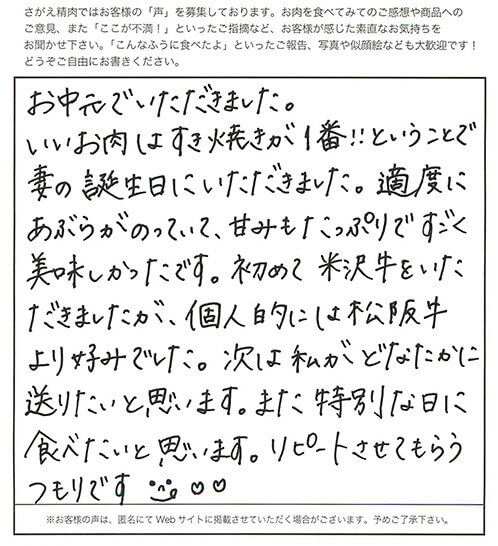 さがえ精肉ではお客様の「声」を募集しております。お肉を食べてみてのご感想や商品への
ご意見、また「ここが不満！」といったご指摘など、お客様が感じた素直なお気持ちを
お聞かせ下さい。「こんなふうに食べたよ」といったご報告、写真や似顔絵なども大歓迎です！
どうぞご自由にお書きください。
お中元でいただきました。
いいお肉はすき焼きが1番!!ということで
妻の誕生日にいただきました。適度に
あぶらがのっていて、甘みもたっぷりですごく
美味しかったです。初めて米沢牛をいた
だきましたが、個人的には松阪牛
より好みでした。次は私がどなたかに
送りたいと思います。また特別な日に
食べたいと思います。リピートさせてもらう
つもりです
※お客様の声は、匿名にてWebサイトに掲載させていただく場合がございます。予めご了承下さい。